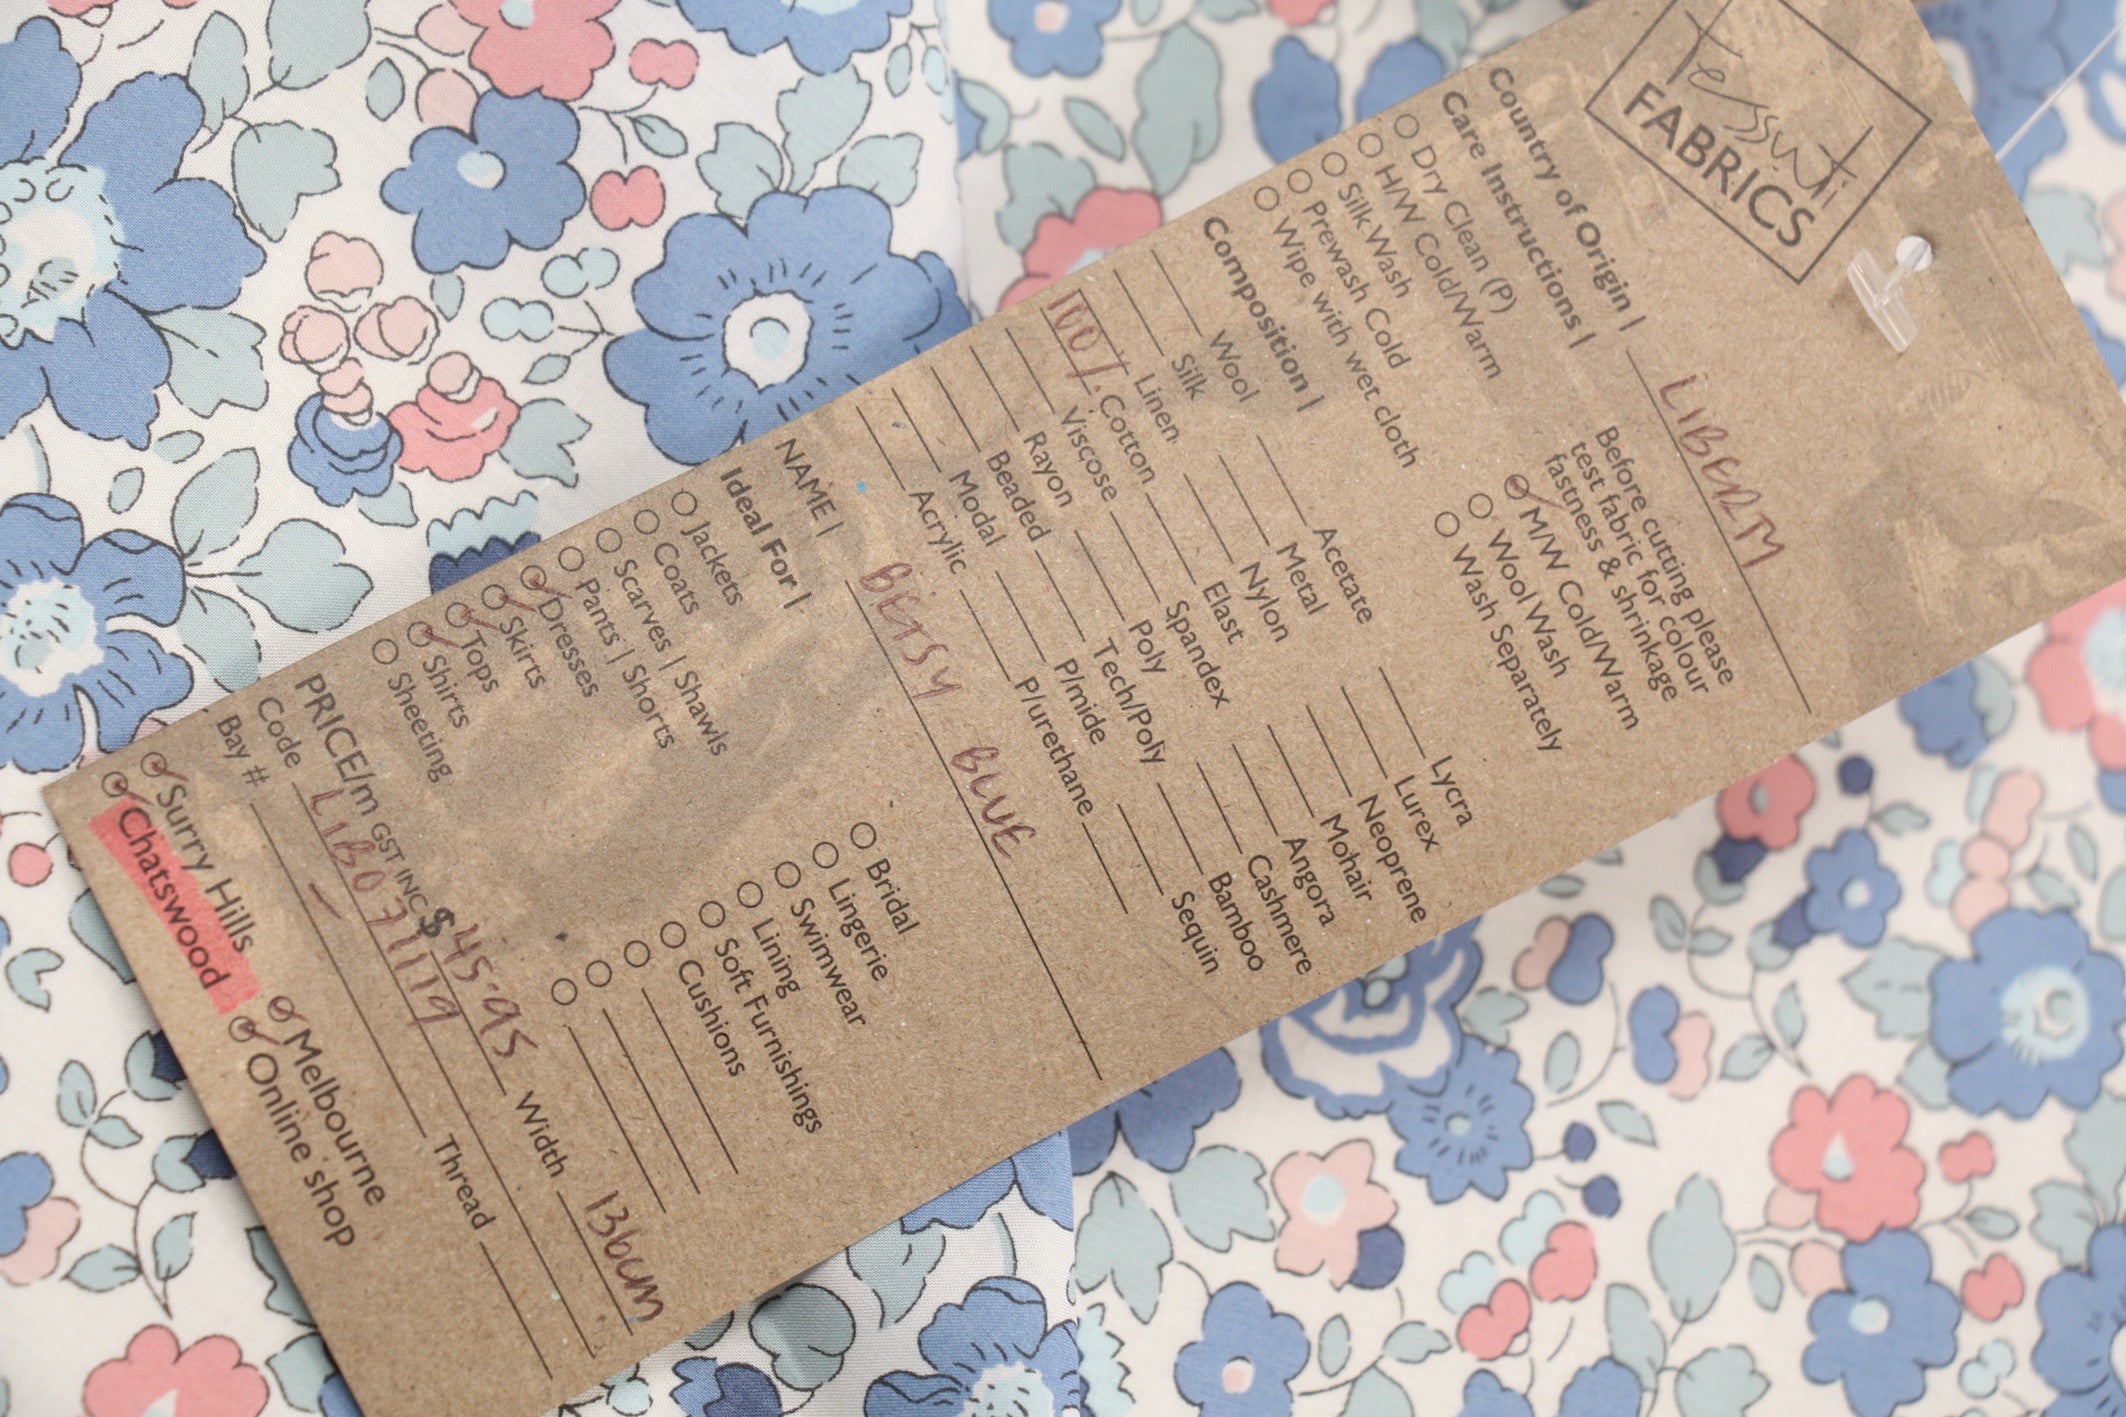 Tessuti
FABRICS
Country of Origin | LIBERTY
Care Instructions |
Before cutting please
test fabric for colour
fastness & shrinkage
Dry Clean (P)
H/W Cold/Warm
Silk Wash
Prewash Cold
Wipe with wet cloth
M/W Cold/Warm
Wool Wash
Wash Separately
Composition |
Wool Acetate Lycra
Silk Metal Lurex
Linen Nylon Neoprene
100% Cotton Elast Mohair
Viscose Spandex Angora
Rayon Poly Cashmere
Beaded Tech/Poly Bamboo
Modal P/mide Sequin
Acrylic P/urethane
NAME | BETSY BLUE
Ideal For |
Jackets Bridal
Coats Lingerie
Scarves | Shawls Swimwear
Pants | Shorts Lining
Dresses Soft Furnishings
Skirts Cushions
Tops
Shirts
Sheeting
PRICE/m GST INC $45.95 Width 136cm
Code LIB071119
Bay # — Thread
Surry Hills Melbourne
Chatswood Online shop